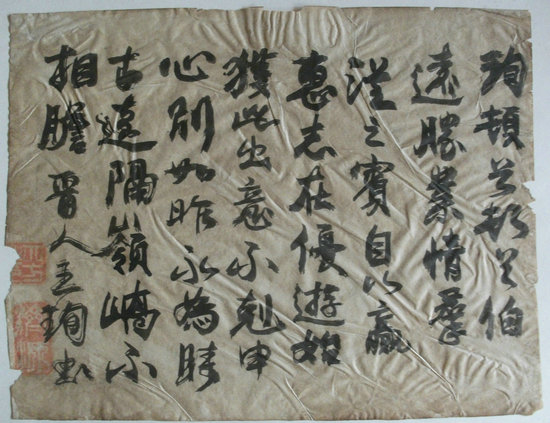 珣頓首頓首伯
遠勝業情羣
從之賓自以羸
患志在優遊始
獲此出意不剋申
心別如昨永為疇
古遠隔嶺嶠不
相瞻晉人王珣書